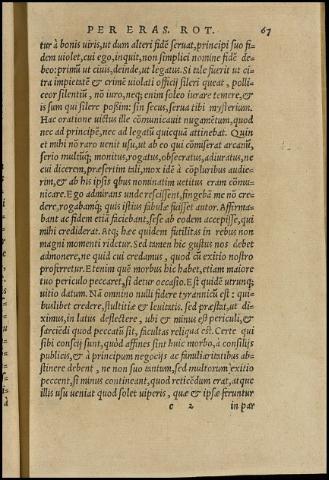 PER ERAS. ROT. 67
tur à bonis uiris, ut dum alteri fidē seruat, principi suo fi-
dem uiolet, cui ego, inquit, non simplici nomine fidē de-
beo: primū ut ciuis, deinde, ut legatus. Si tale fuerit ut ci-
tra impietatē & crimē uiolati officij sileri queat, polli-
ceor silentiū, nō iuro, neq; enim soleo iurare temere, &
is sum qui silere possim: sin secus, serua tibi mysterium.
Hac oratione uictus ille cōmunicauit nugamētum, quod
nec ad principē, nec ad legatū quicquā attinebat. Quin
et mihi nō raro uenit usu, ut ab eo qui cōmiserat arcanū,
serio multūq; monitus, rogatus, obsecratus, adiuratus, ne
cui dicerem, præsertim tali, mox idē à cōpluribus audie-
rim, & ab his ipsis qbus nominatim uetitus eram cōmu-
nicare. Ego admirans unde resciissent, fingebā me nō cre-
dere, rogabamq; quis istius fabulæ fuisset autor. Affirma-
bant ac fidem etiā faciebant, sese ab eodem accepisse, qui
mihi crediderat. Atq; hæc quidem futilitas in rebus non
magni momenti ridetur. Sed tamen hic gustus nos debet
admonere, ne quid cui credamus, quod cū exitio nostro
proferretur. Etenim quē morbus hic habet, etiam maiore
tuo periculo peccaret, si detur occasio. Est quidē utrunq;
uitio datum. Nā omnino nulli fidere tyrannicū est: qui-
buslibet credere, stultitiæ & leuitatis. sed præstat, ut di-
ximus, in latus deflectere, ubi & minus est periculi, &
sarciēdi quod peccatū sit, facultas reliqua est. Certe qui
sibi conscij sunt, quòd affines sint huic morbo, à consilijs
publicis, & à principum negocijs ac familiaritatibus ab-
stinere debent, ne non suo tantum, sed multorum exitio
peccent, si minus contineant, quod reticēdum erat, atque
illis usu ueniat quod solet uiperis, quæ & ipsæ feruntur
c 2 in par